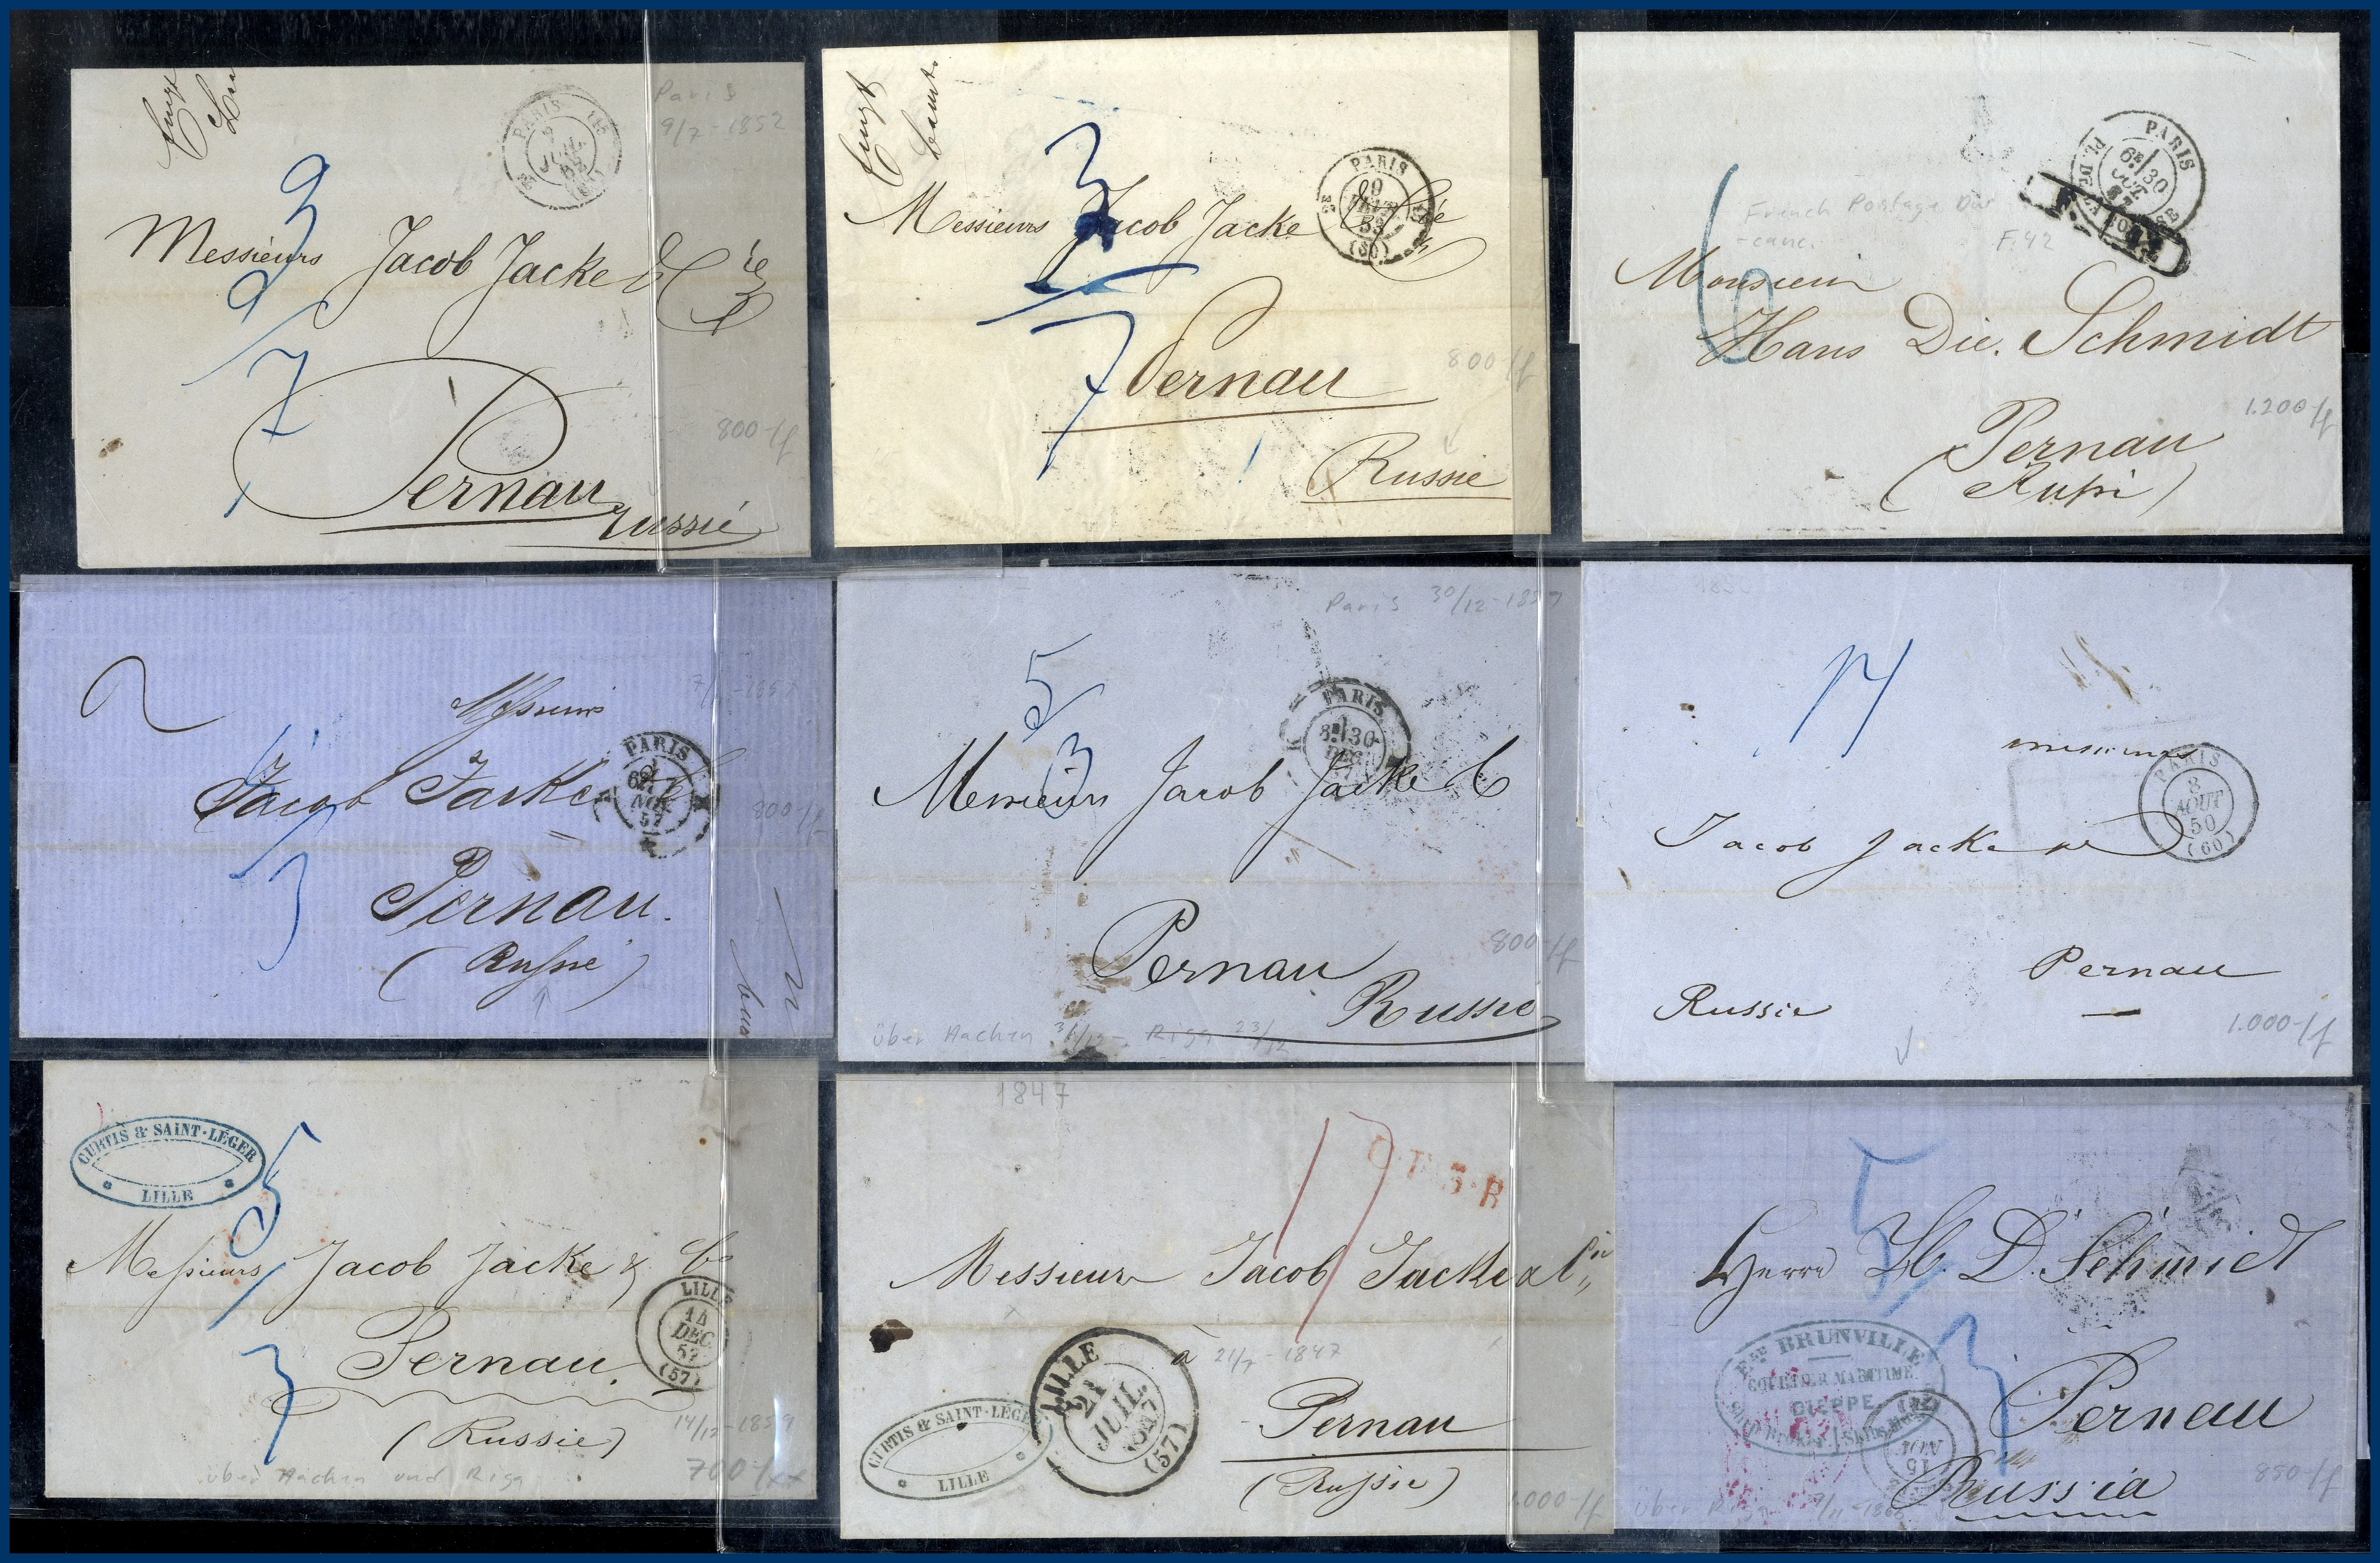 Paris
9/7-1852
PARIS
9
JUIL
52
(60)
3
7
Messieurs Jacob Jacke & Cie
Pernau
Russie
800-ff
PARIS
(60)
3
7
Messieurs Jacob Jacke & Cie
Pernau
Russie
800-ff
PARIS
6E/30
OCT
PL. DE LA BOURSE
French Postage Due
-canc.
F.42
6
Monsieur
Hans Die. Schmidt
Pernau
1.200-ff
Messieurs
Jacob Jacke & Co
PARIS
NOV
57
3
Pernau.
(Russie)
800-ff
Paris 30/12-1857
5
PARIS
30
DEC
3
Messieurs Jacob Jacke & Co
Pernau
Russie
800-ff
über Aachen 31/12- Riga 23/12
17
Messieurs
PARIS
8
AOUT
50
(60)
Jacob Jacke &
Pernau
Russie
1.000-ff
CURTIS & SAINT-LÉGER
LILLE
5
Messieurs Jacob Jacke & Co
LILLE
14
DEC.
57
(57)
Pernau.
3
(Russie)
14/12-1859
über Aachen und Riga
700-/xx
1847
17
Messieurs Jacob Jacke & Cie
à 21/7-1847
LILLE
21
JUIL.
1847
(57)
CURTIS & SAINT-LÉGER
LILLE
Pernau
(Russie)
1.000-ff
5
Herrn H. D. Schmidt
BRUNVILLE
COURTIER MARITIME
DIEPPE
15
NOV
3
Pernau
Russia
über Riga
850-ff